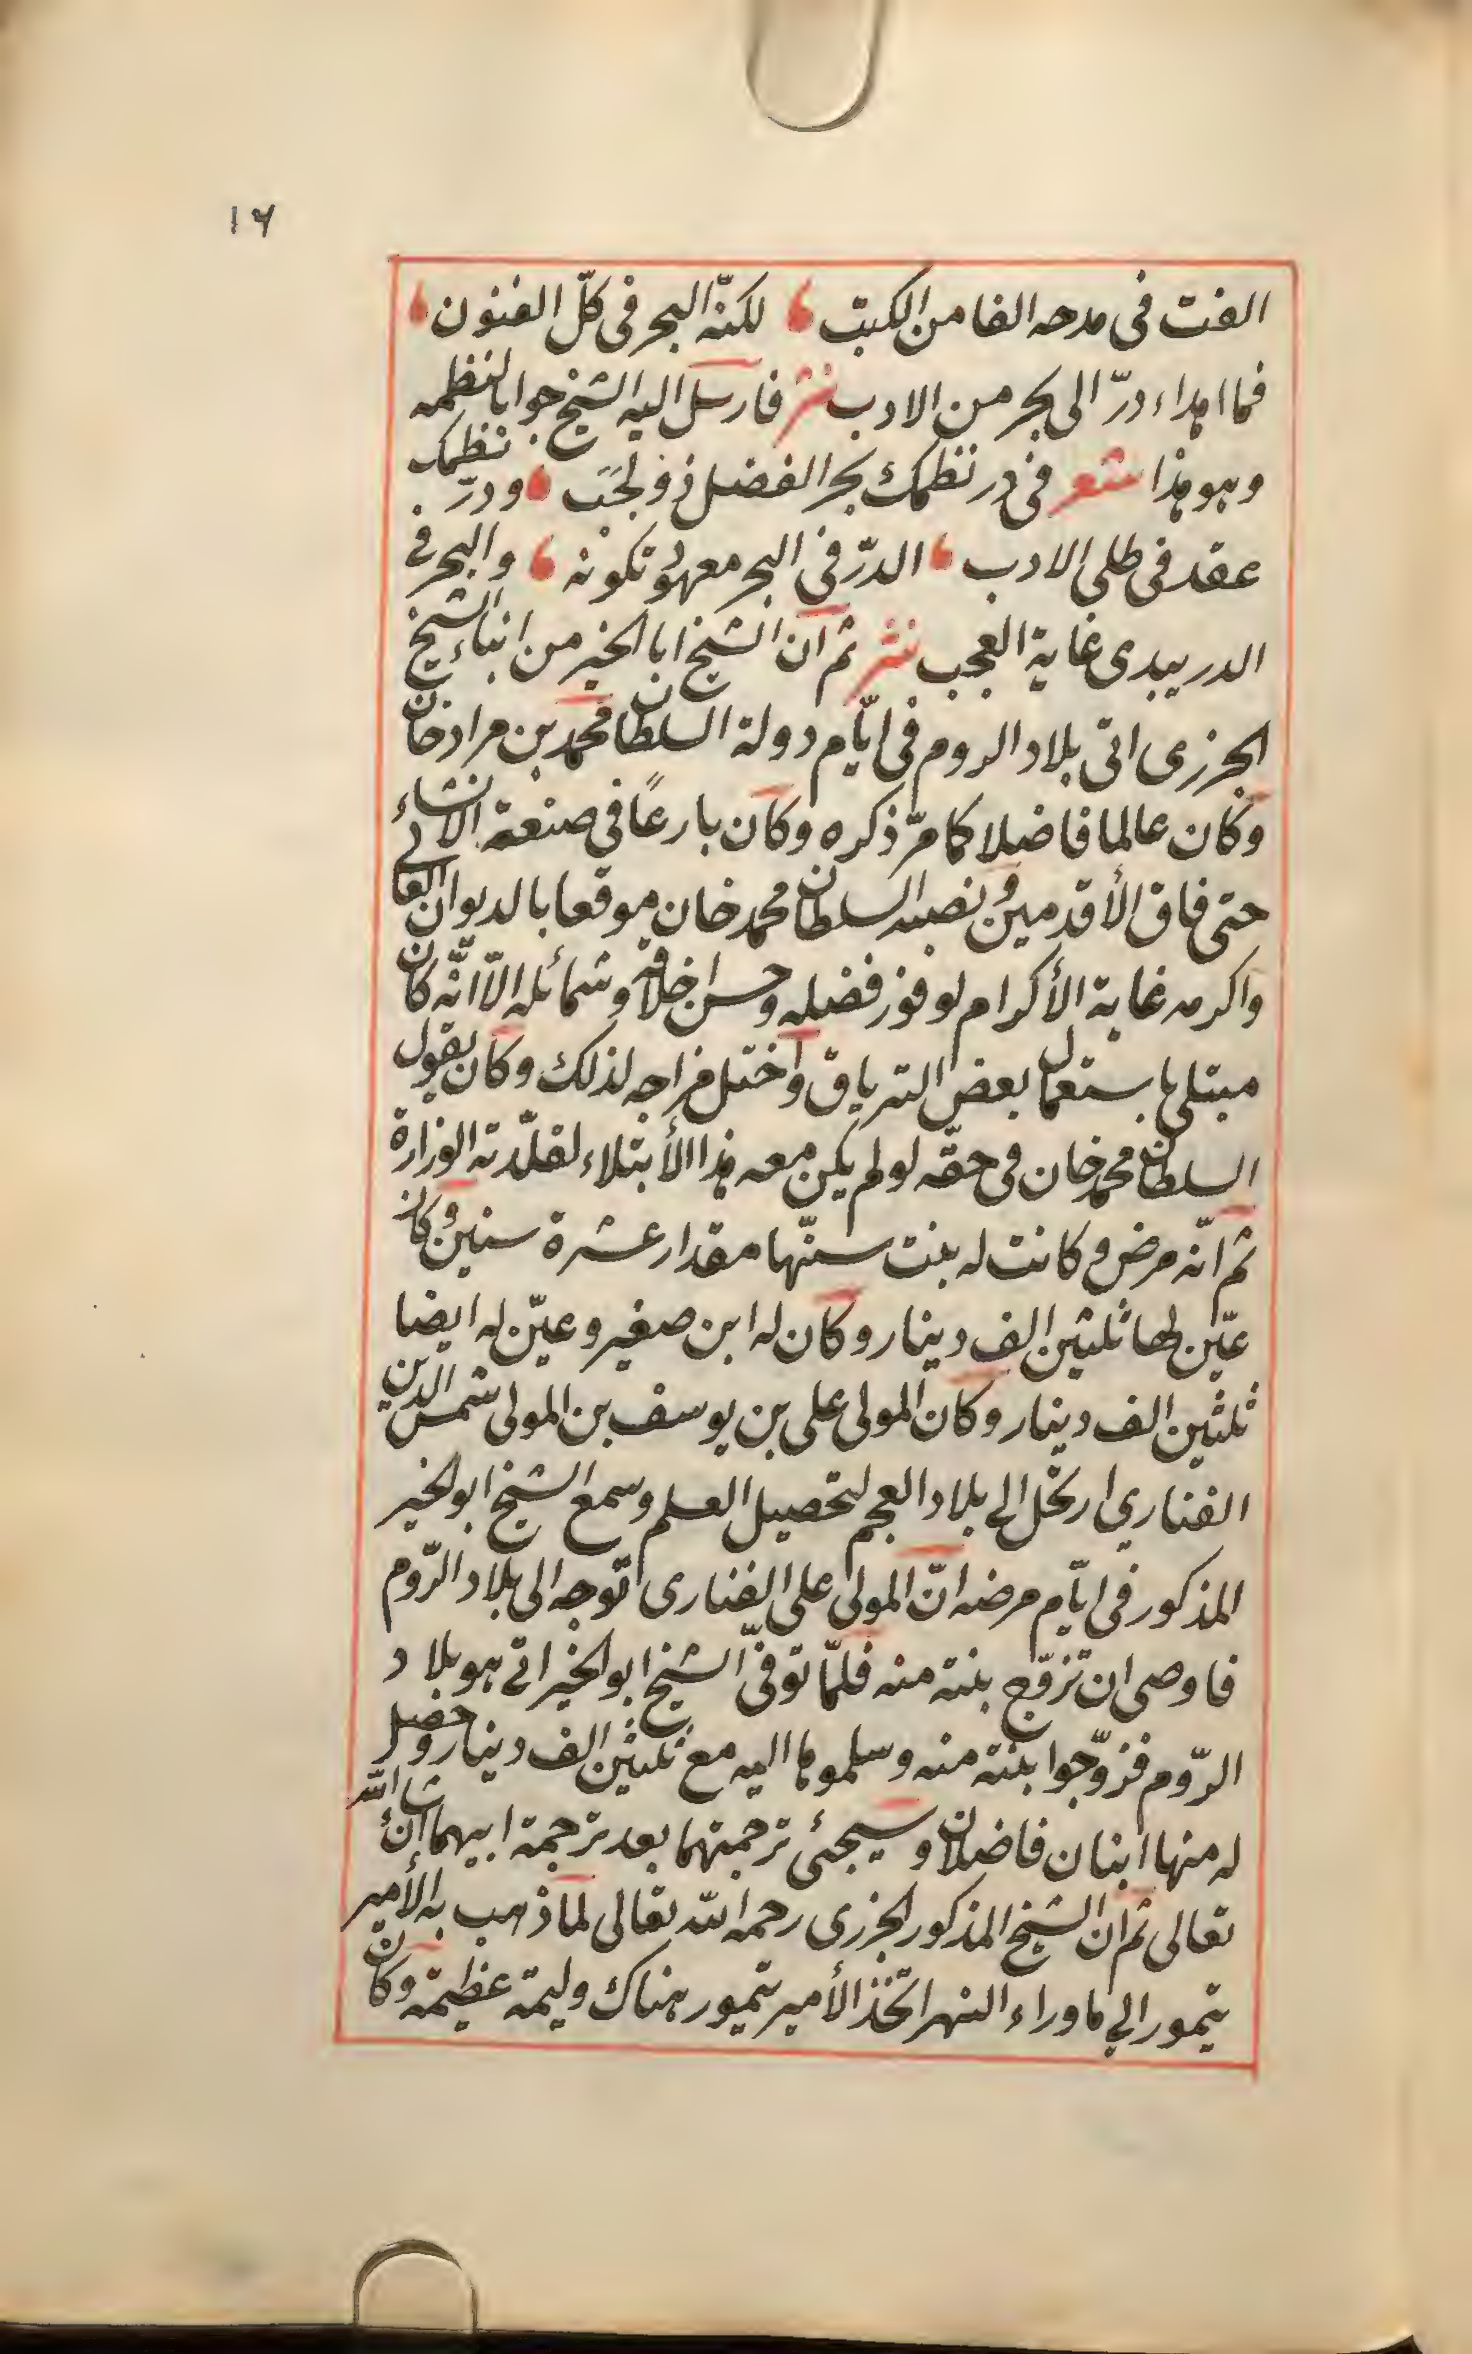 ١٦
الفت فى مدحه الفا من الكتب لكنّه البحر فى كلّ الفنون
فما اهداء درّ الى بحر من الادب نثر فارسل اليه الشيخ جوابا لنظمه
وهو هذا شعر فى در نظمك بحر الفضل ذو لجب ودرّ نظمك
عقد فى طلى الادب الدرّ فى البحر معهود تكونه والبحر فى
الدر يبدى غاية العجب نثر ثم ان الشيخ ابا الخير من ابناء الشيخ
الجزرى اتى بلاد الروم فى ايّام دولة السلطان محمد بن مراد خان
وكان عالما فاضلا كما مرّ ذكره وكان بارعًا فى صنعة الانشاء
حتى فاق الأقدمين ونصبه السلطان محمد خان موقعا بالديوان العالى
واكرمه غاية الأكرام لوفور فضله وحسن اخلاقه وشمائله الّا انّه كان
مبتلى باستعمال بعض الترياق واختل مزاجه لذلك وكان يقول
السلطان محمد خان فى حقّه لو لم يكن معه هذا الأبتلاء لقلّدته الوزارة
ثم انّه مرض وكانت له بنت سنّها مقدار عشرة سنين وكان
عيّن لها ثلثين الف دينار وكان له ابن صغير وعيّن له ايضا
ثلثين الف دينار وكان المولى على بن يوسف بن المولى شمس الدين
الفناري ارتحل الى بلاد العجم لتحصيل العلم وسمع الشيخ ابو الخير
المذكور فى ايّام مرضه انّ المولى على الفنارى توجه الى بلاد الرّوم
فاوصى ان تزوّج بنته منه فلمّا توفىّ الشيخ ابو الخير اتى هو بلاد
الرّوم فزوّجوا بنته منه وسلموها اليه مع ثلثين الف دينار وحصل
له منها ابنان فاضلان وسيجئ ترجمتهما بعد ترجمة ابيهما ان شاء الله
تعالى ثم ان الشيخ المذكور الجزرى رحمه الله تعالى لما ذهب به الأمير
تيمور الى ماوراء النهر اتّخذ الأمير تيمور هناك وليمة عظيمة وكان